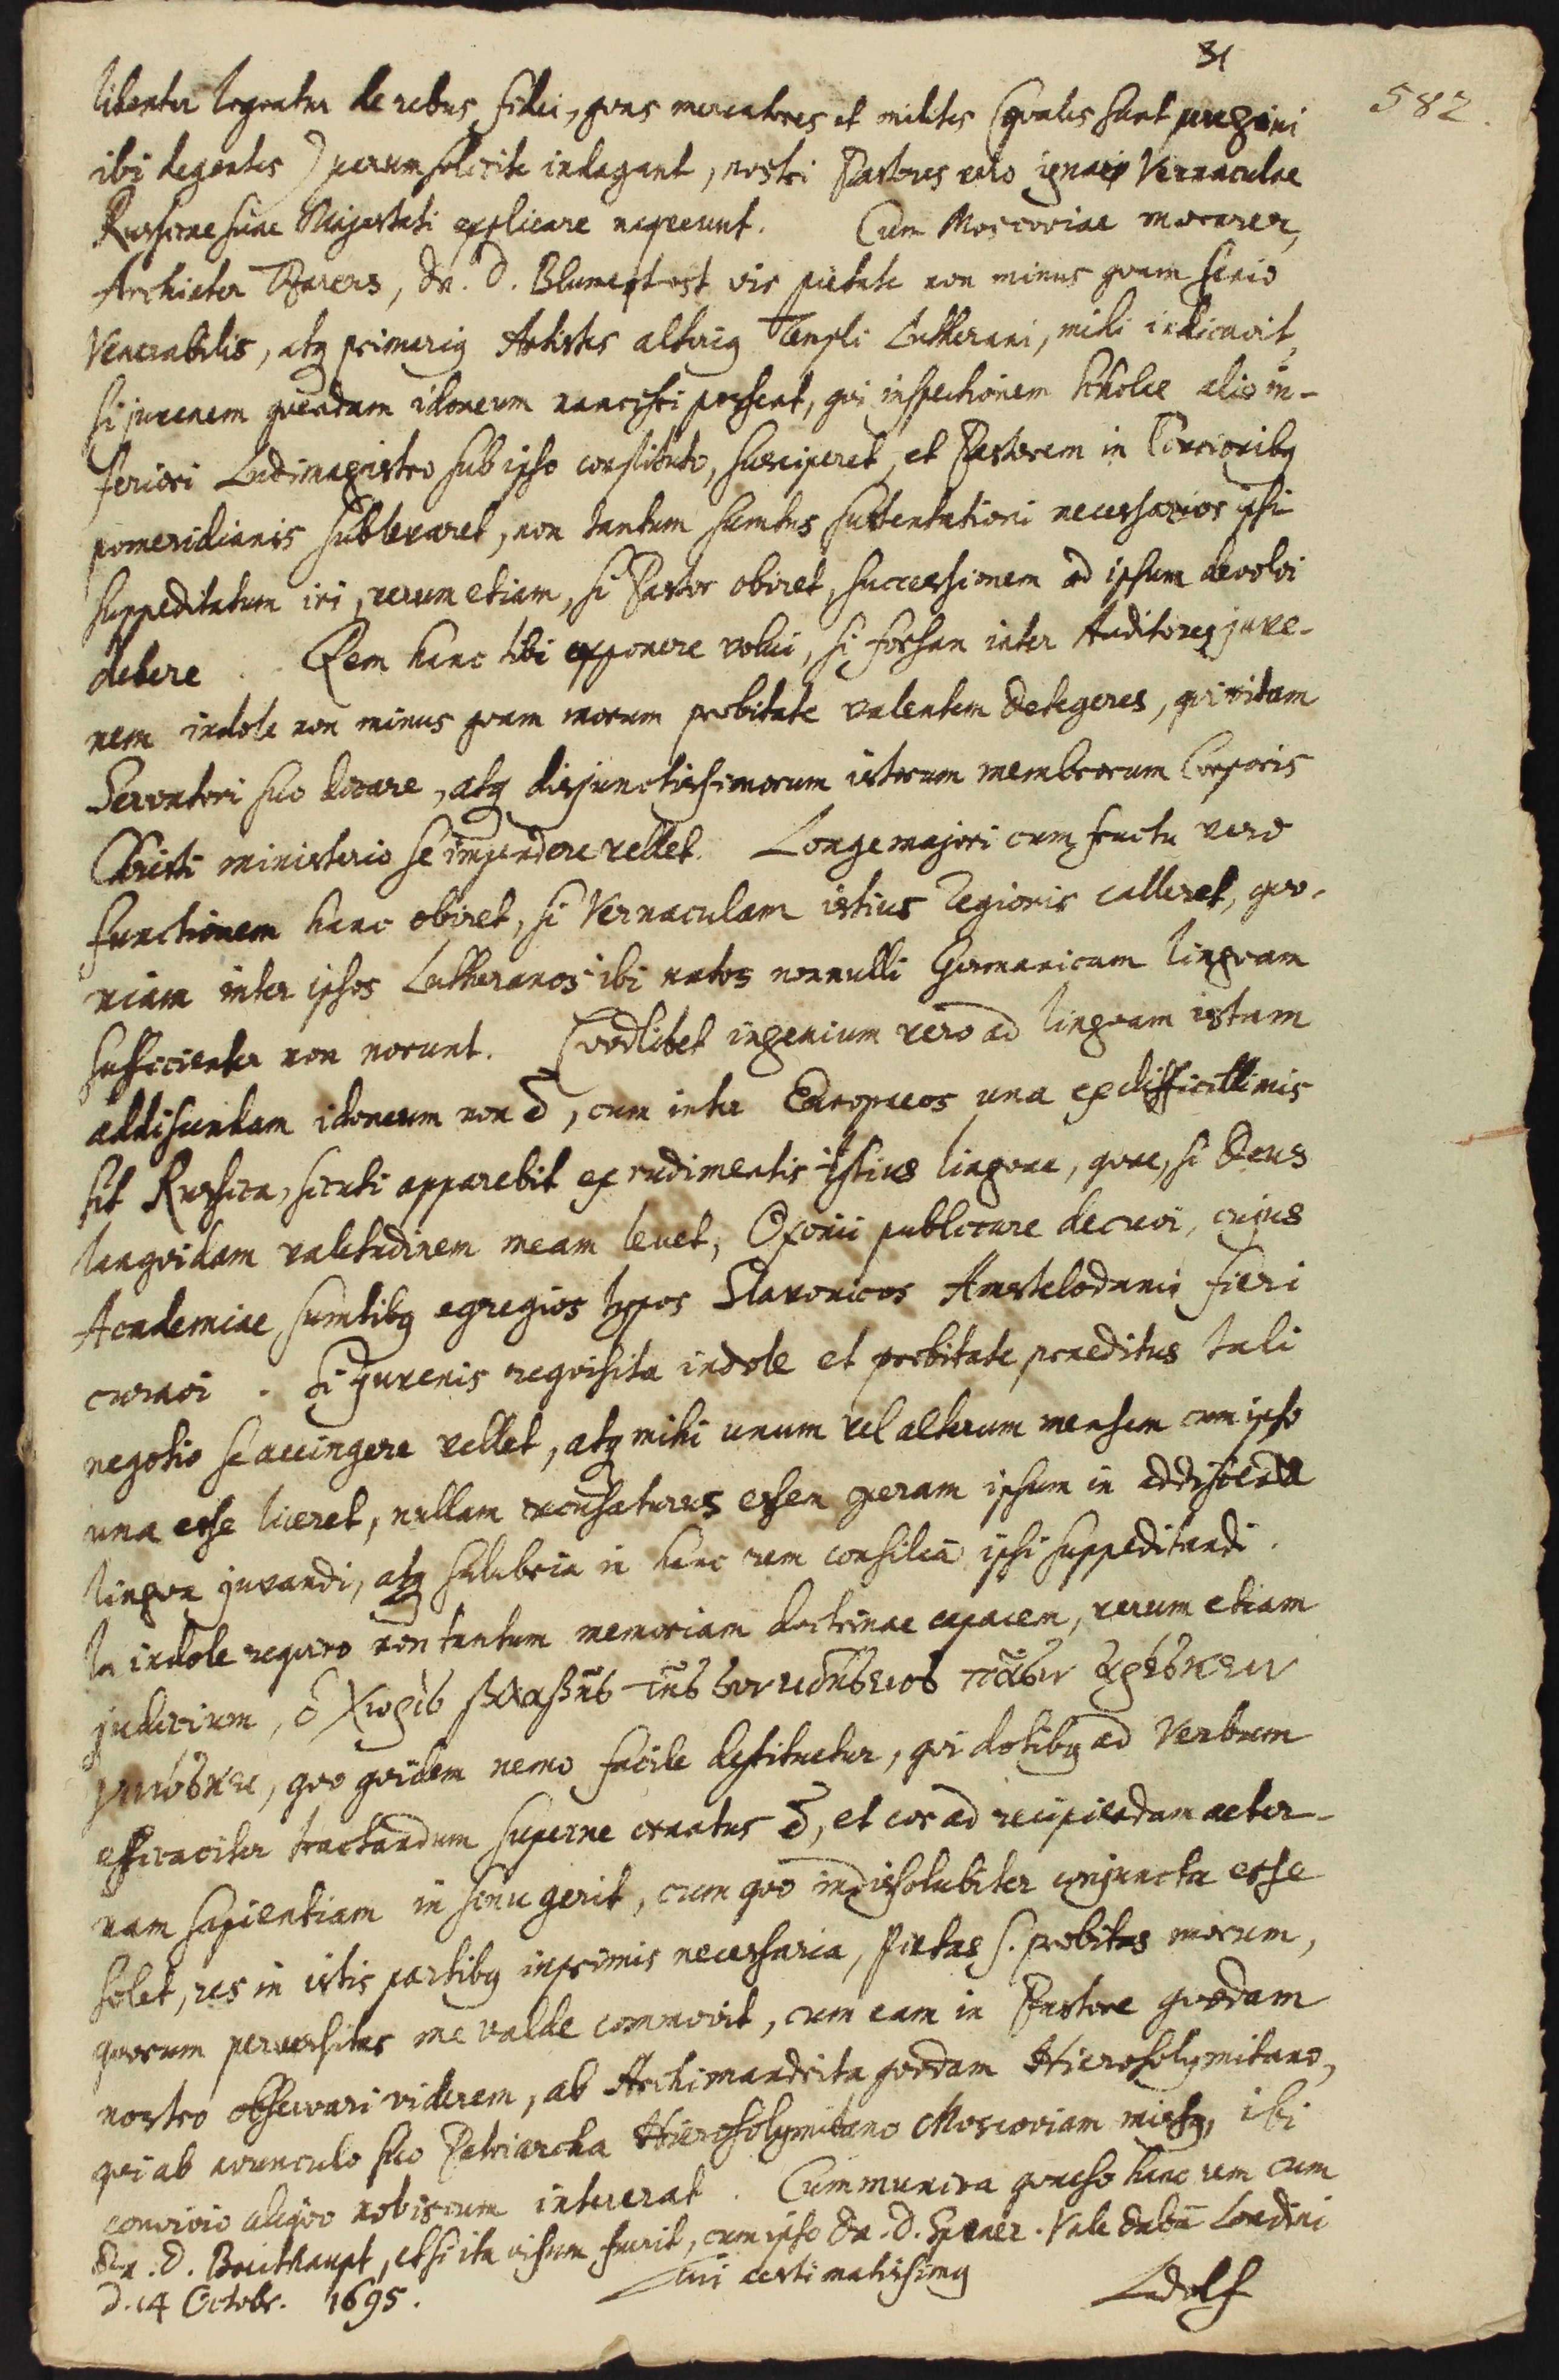 31
582.
libenter loquatur de rebus fidei, quas mercatores et milites (quales sunt
ibi degentes) parum solicite indagant, nostri Pastores vero ignari Vernaculae
Russicae suae Majestati explicare nequeunt. Cum Moscoviae morarer,
Archiater Tzareus, Dn. D. Blumentrost vir pietate non minus quam senio
Venerabilis, atq primariq Antistes alteriq Templi Lutherani, mihi indicavit,
si juvenem quendam idoneum nancisci possent, qui inspectionem scholae alio in-
feriori Ludimagistro sub ipso constituto, susciperet, et Pastorem in Concionibq
pomeridianis sublevaret, non tantum sumtus sustentationi necessarios ipsi
suppeditatum iri, verum etiam, si Pastor obiret, successionem ad ipsum devolvi
debere. Rem hanc tibi exponere volui, si forsan inter Auditores juve-
nem indole non minus quam morum probitate valentem detegeres, qui vitam
Servatori suo dicare, atq disjunctissimorum istorum membrorum Corporis
Christi ministerio se impendere vellet. Longe majori cum fructu vero
functionem hanc obiret, si Vernaculam istius regionis calleret, quo-
niam inter ipsos Lutheranos ibi natos nonnulli Germanicam linguam
sufficienter non norunt. Quodlibet ingenium vero ad linguam istam
addiscendam idoneum non ē, cum inter Europaeos una ex difficillimis
sit Russica, sicuti apparebit ex rudimentis istius linguae, quae, si Deus
languidam valetudinem meam levet, Oxonii publicare decrevi, cujus
Academiae sumtibq egregios typos Slavonicos Amstelodami fieri
curavi. Si Juvenis requisita indole et probitate praeditus tali
negotio se accingere vellet, atq mihi unum vel alterum mensem cum ipso
una esse liceret, nullam recusaturus essem operam ipsum in addiscenda
lingua juvandi, atq salubria in hanc rem consilia ipsi suppeditandi.
In indole requiro non tantum memoriam doctrinae capacem, verum etiam
judicium, ὃ χωρὶς βλάβης τῆς συνειδήσεως πᾶσιν ἀρέσκειν
γινώσκει, quo quidem nemo facile destituetur, qui dotibq ad Verbum
efficaciter tractandum superne ornatus ē, et cor ad recipiendam aeter-
nam sapientiam in sinu gerit, cum quo indissolubiliter conjuncta esse
solet, res in istis partibq inprimis necessaria, pietas s. probitas morum,
quorum perversitas me valde commovit, cum eam in Pastore quodam
nostro observari viderem, ab Archimandrita quodam Hierosolymitano,
qui ab avunculo suo Patriarcha Hierosolymitano Moscoviam missq, ibi
convivio aliquo nobiscum intererat. Cummunica quaeso hanc rem cum
Dn. D. Breithaupt, et si ita visum fuerit, cum ipso Dn. D. Spener. Vale Dabā Londini
d. 14 Octobr. 1695. Tui aestimatissimq
Ludolf